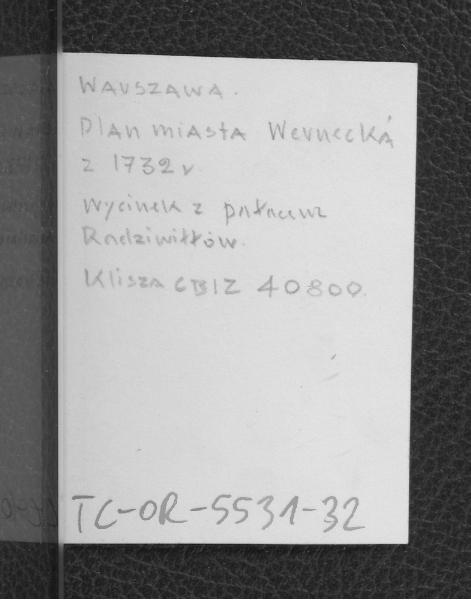 Warszawa.
Plan miasta Wernecká
z 1732 r
Wycinek z pałacem
Radziwiłłów.
Klisza CBIZ 40800.
TC-OR-5531-32